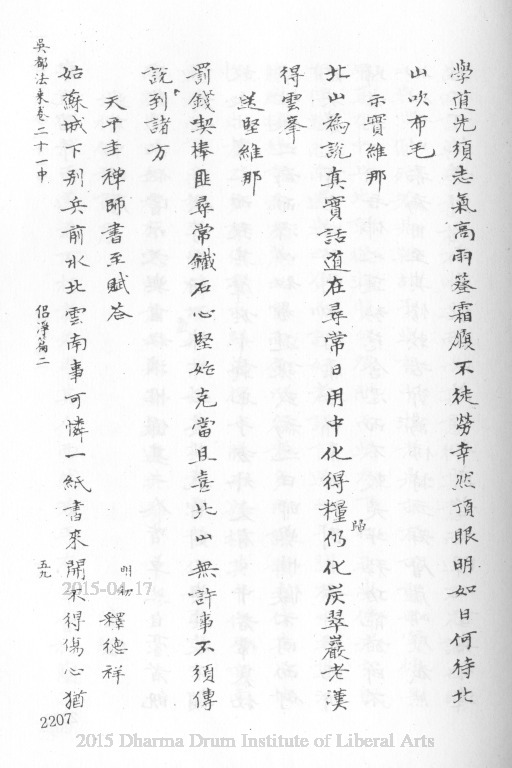 學道先須志氣高雨蓑霜屩不徒勞幸然頂眼明如日何待北
山吹布毛
示實維那
北山為說真實話道在尋常日用中化得糧歸仍化炭翠巖老漢
得雲峯
送堅維那
罰錢喫棒匪尋常鐵石心堅始克當且喜北山無許事不須傳
說到諸方
天平圭禪師書至賦荅
明初 釋德祥
姑蘇城下別兵前水北雲南事可憐一紙書來開未得傷心猶
吳都法乘卷二十一中
侶淨篇二
五九
2207
2015-04-17
2015 Dharma Drum Institute of Liberal Arts